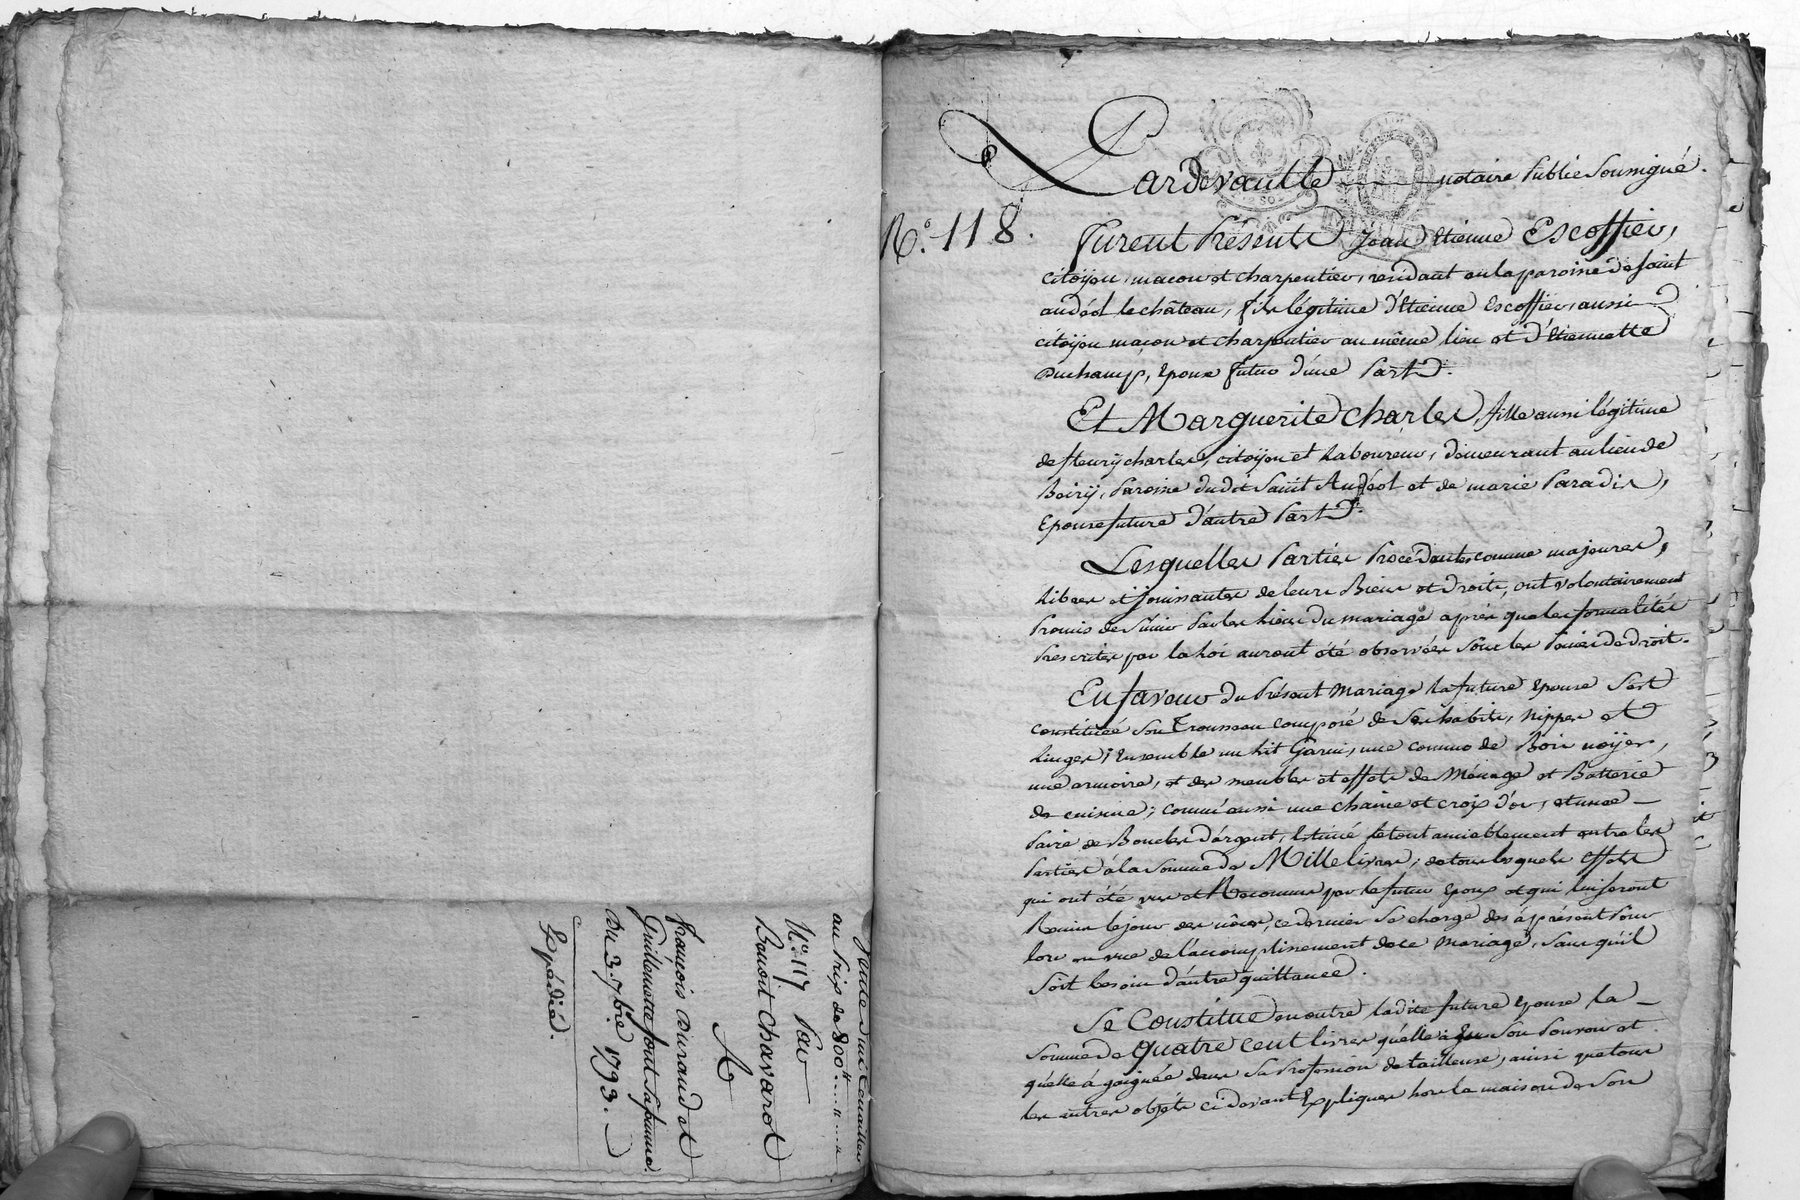 Vente d'un tenailler
au prix de 800# .... " .... "
N.º 117 Par
Benoit Chavarot
A
François Durand et
Guillemette font sa femme.
Du 3. 7bre 1793.
Expédiée.
Pardevant le notaire Public Soussigné.
N.º 118.
Furent Présents Jean Etienne Escoffier,
citoÿen, macon et charpentier, residant en la paroisse de Saint
andéol le château, fils légitime d'Etienne Escoffier, aussi
citoÿen maçon et charpentier au même lieu et d'Etiennette
Duchamp, Epoux futur d'une Part.
Et Marguerite Charles, fille aussi légitime
de fleurÿ charles, citoÿen et Laboureur, demeurant au lieu de
Boirÿ, Paroisse dudit Saint Andéol et de marie Paradis,
Epouse future d'autre Part.
Lesquelles Parties Procédantes comme majeures,
Libres et jouissantes de leurs Biens et Droits, ont volontairement
Promis de S'unir Par les Liens du mariage après que les formalités
Prescrites par la Loi auront été observées Sous les Peines de droit.
En faveur du Présent Mariage La future Epouse S'est
constituée Son Trousseau composé de Ses habits, Nippes et
Linges; Ensemble un Lit Garni, une commo de Bois noÿer,
une armoire, et des meubles et effets de Ménage et Batterie
de cuisine; comm'aussi une chaine et croix d'or, et une
Paire de Boucles d'argent, Estimé le tout amiablement entre les
Parties à la Somme de Mille livres; de tous lesquels Effets
qui ont été vus et Reconnus par le futur Epoux et qui lui seront
Remis le jour des nôces, ce dernier Se charge dès àprésent Pour
lors en vue de l'accomplissement de ce Mariage, Sans qu'il
Soit besoin d'autre quittance.
Se Constitue en outre ladite future Epouse la
Somme de Quatre cent livres qu'elle a En Son Pouvoir et
qu'elle à gaignée dans Sa Profession de tailleuse, ainsi que tous
les autres objets ci devant Expliqués hors la maison de Son